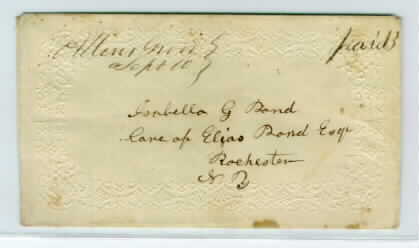 Allens Grove
Sept 10
Paid 3
Isabella G Bond
Care of Elias Bond Esqr
Rochester
N Y